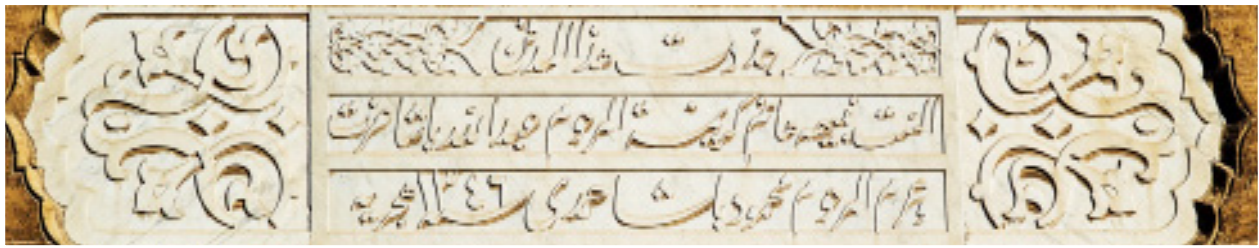 جددت هذا المدفن
الست نبيهه هانم كريمة المرحوم عبد الله باشا حرم
المرحوم محمود باشا حمدى سنة ١٣٤٦ الهجريه